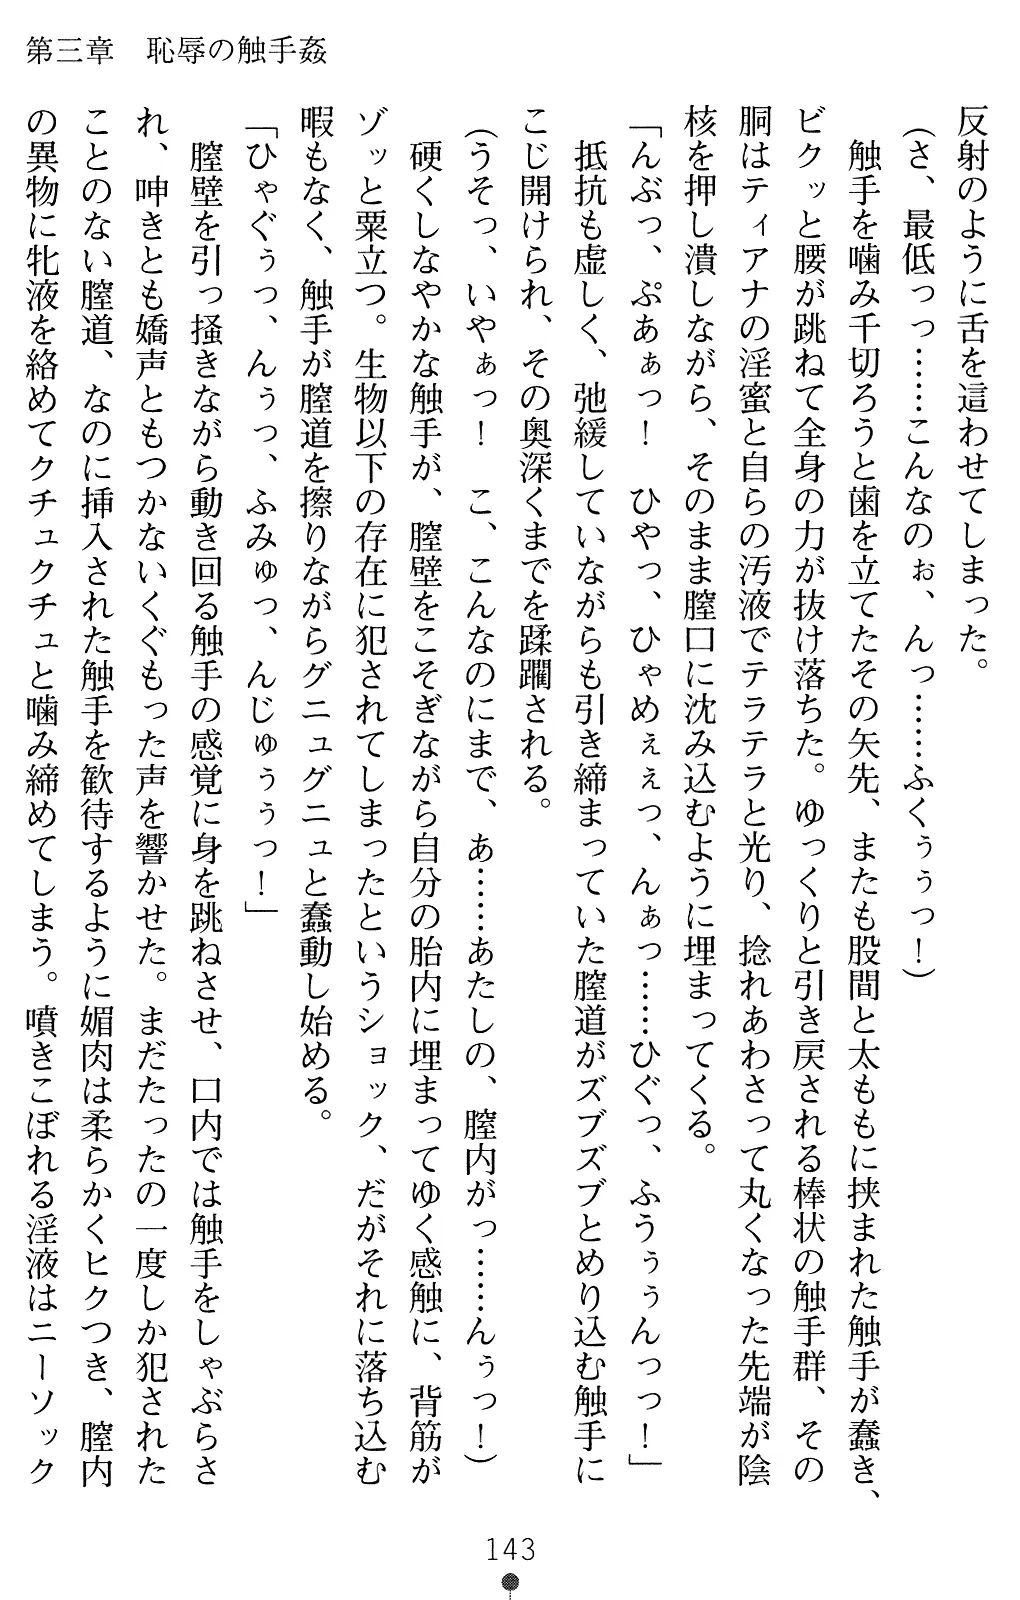 第三章　恥辱の触手姦
反射のように舌を這わせてしまった。
（さ、最低っっ……こんなのぉ、んっ……ふくぅぅっ！）
　触手を噛み千切ろうと歯を立てたその矢先、またも股間と太ももに挟まれた触手が蠢き、
ビクッと腰が跳ねて全身の力が抜け落ちた。ゆっくりと引き戻される棒状の触手群、その
胴はティアナの淫蜜と自らの汚液でテラテラと光り、捻れあわさって丸くなった先端が陰
核を押し潰しながら、そのまま膣口に沈み込むように埋まってくる。
「んぶっ、ぷあぁっ！　ひやっ、ひゃめぇぇっ、んぁっ……ひぐっ、ふうぅぅんっっ！」
　抵抗も虚しく、弛緩していながらも引き締まっていた膣道がズブズブとめり込む触手に
こじ開けられ、その奥深くまでを蹂躙される。
（うそっ、いやぁっ！　こ、こんなのにまで、あ……あたしの、膣内がっ……んぅっ！）
　硬くしなやかな触手が、膣壁をこそぎながら自分の胎内に埋まってゆく感触に、背筋が
ゾッと粟立つ。生物以下の存在に犯されてしまったというショック、だがそれに落ち込む
暇もなく、触手が膣道を擦りながらグニュグニュと蠢動し始める。
「ひゃぐぅっ、んぅっ、ふみゅっ、んじゅぅぅっ！」
　膣壁を引っ掻きながら動き回る触手の感覚に身を跳ねさせ、口内では触手をしゃぶらさ
れ、呻きとも嬌声ともつかないくぐもった声を響かせた。まだたったの一度しか犯された
ことのない膣道、なのに挿入された触手を歓待するように媚肉は柔らかくヒクつき、膣内
の異物に牝液を絡めてクチュクチュと噛み締めてしまう。噴きこぼれる淫液はニーソック
143